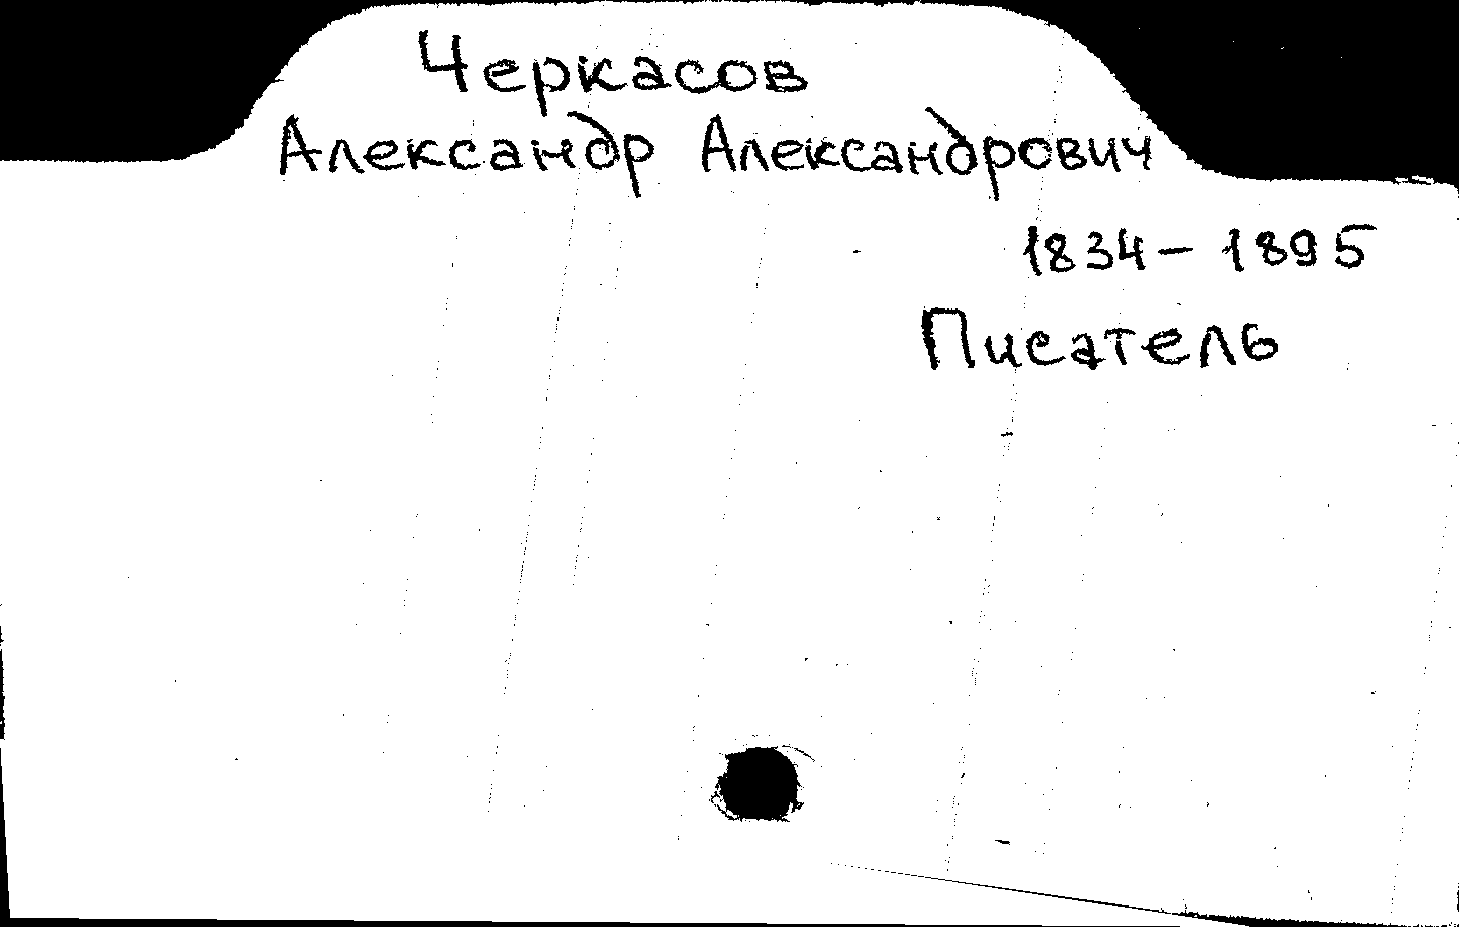 Черкасов
Александр Александрович
1834 – 1895
Писатель